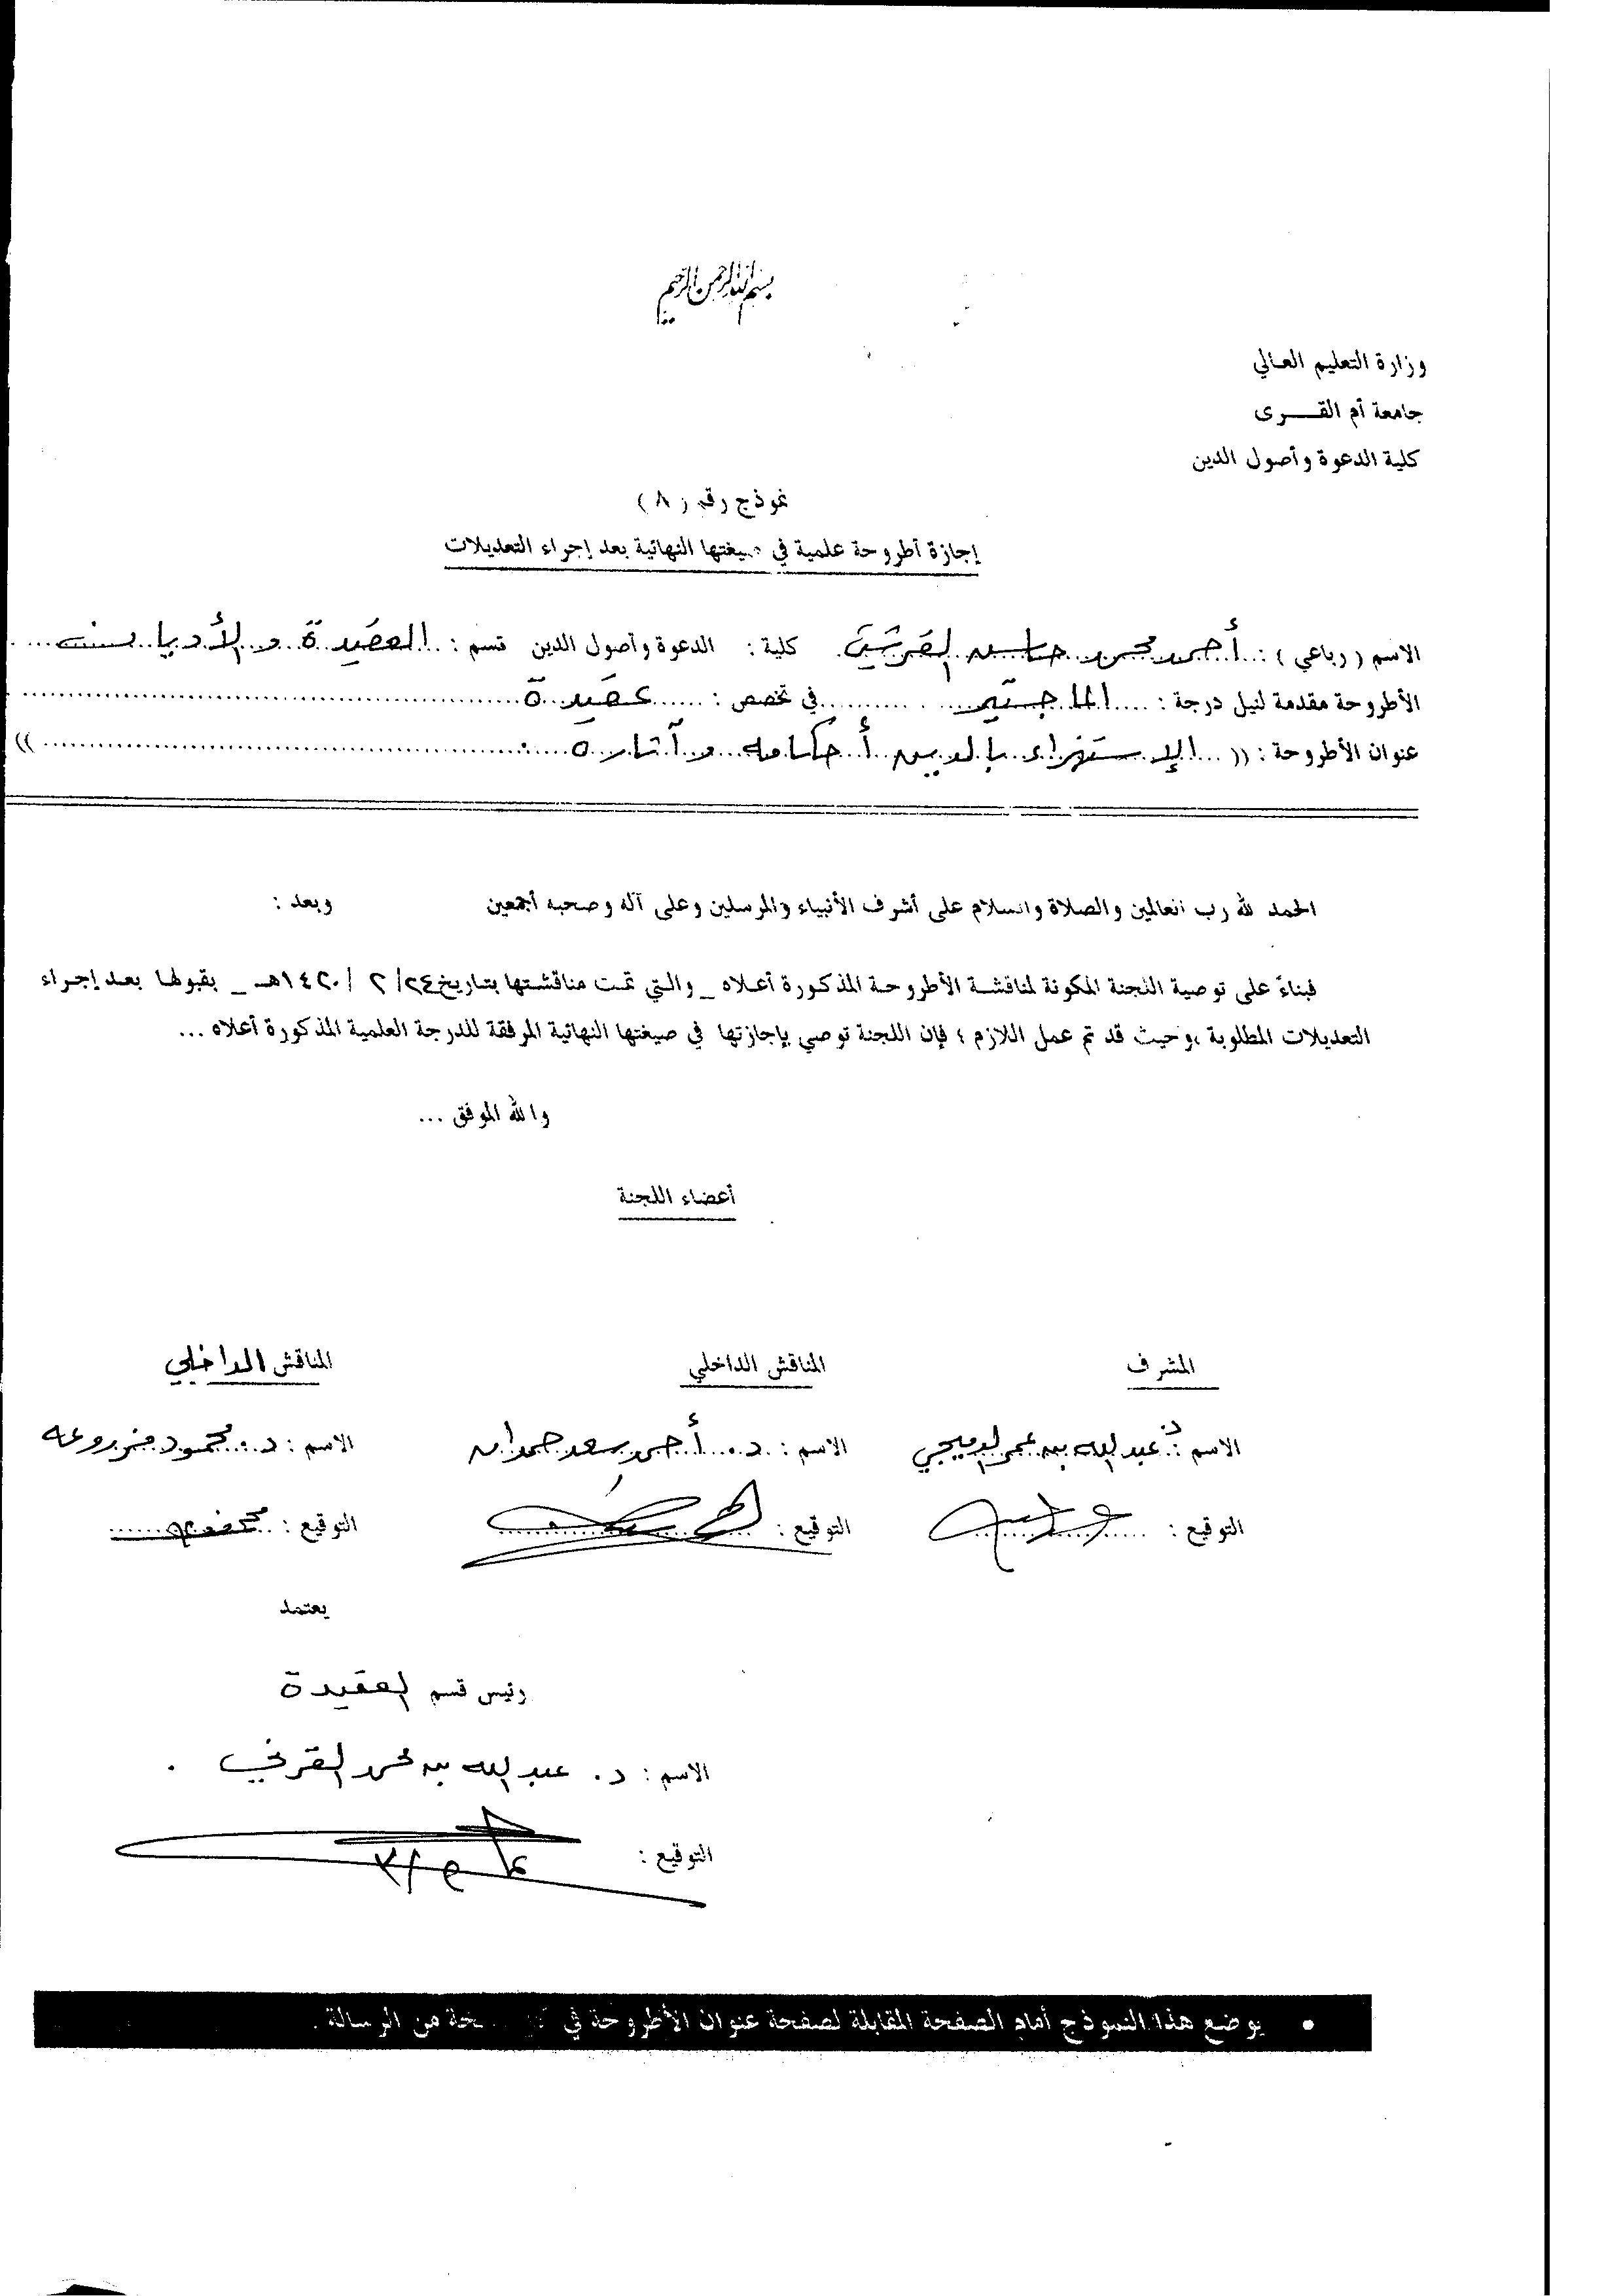 بسم الله الرحمن الرحيم
وزارة التعليم العالي
جامعة أم القـــرى
كلية الدعوة وأصول الدين
نموذج رقم ( ٨ )
إجازة أطروحة علمية في صيغتها النهائية بعد إجراء التعديلات
الاسم ( رباعي ) : أحمد محمد حاسن القرشي كلية : الدعوة وأصول الدين قسم : العقيدة والأديان
الأطروحة مقدمة لنيل درجة : الماجستير في تخصص : عقيدة
عنوان الأطروحة : (( الإستهزاء بالدين أحكامه وآثاره ))
الحمد لله رب العالمين والصلاة والسلام على أشرف الأنبياء والمرسلين وعلى آله وصحبه أجمعين وبعد :
فبناءً على توصية اللجنة المكونة لمناقشة الأطروحة المذكورة أعلاه _ والتي تمت مناقشتها بتاريخ ٢٤/ ٢ / ١٤٢٠هـ _ بقبولها بعد إجراء
التعديلات المطلوبة ،وحيث قد تم عمل اللازم ؛ فإن اللجنة توصي بإجازتها في صيغتها النهائية المرفقة للدرجة العلمية المذكورة أعلاه ...
والله الموفق ...
أعضاء اللجنة
المشرف المناقش الداخلي المناقش الداخلي
الاسم : د. عبد الله بن عمر الدميجي الاسم : د. أحمد سعد حمدان الاسم : د. محمود مزروعة
التوقيع : التوقيع : التوقيع :
يعتمد
رئيس قسم العقيدة
الاسم : د. عبد الله بن محمد القرني .
التوقيع :
• يوضع هذا النموذج أمام الصفحة المقابلة لصفحة عنوان الأطروحة في من الرسالة .